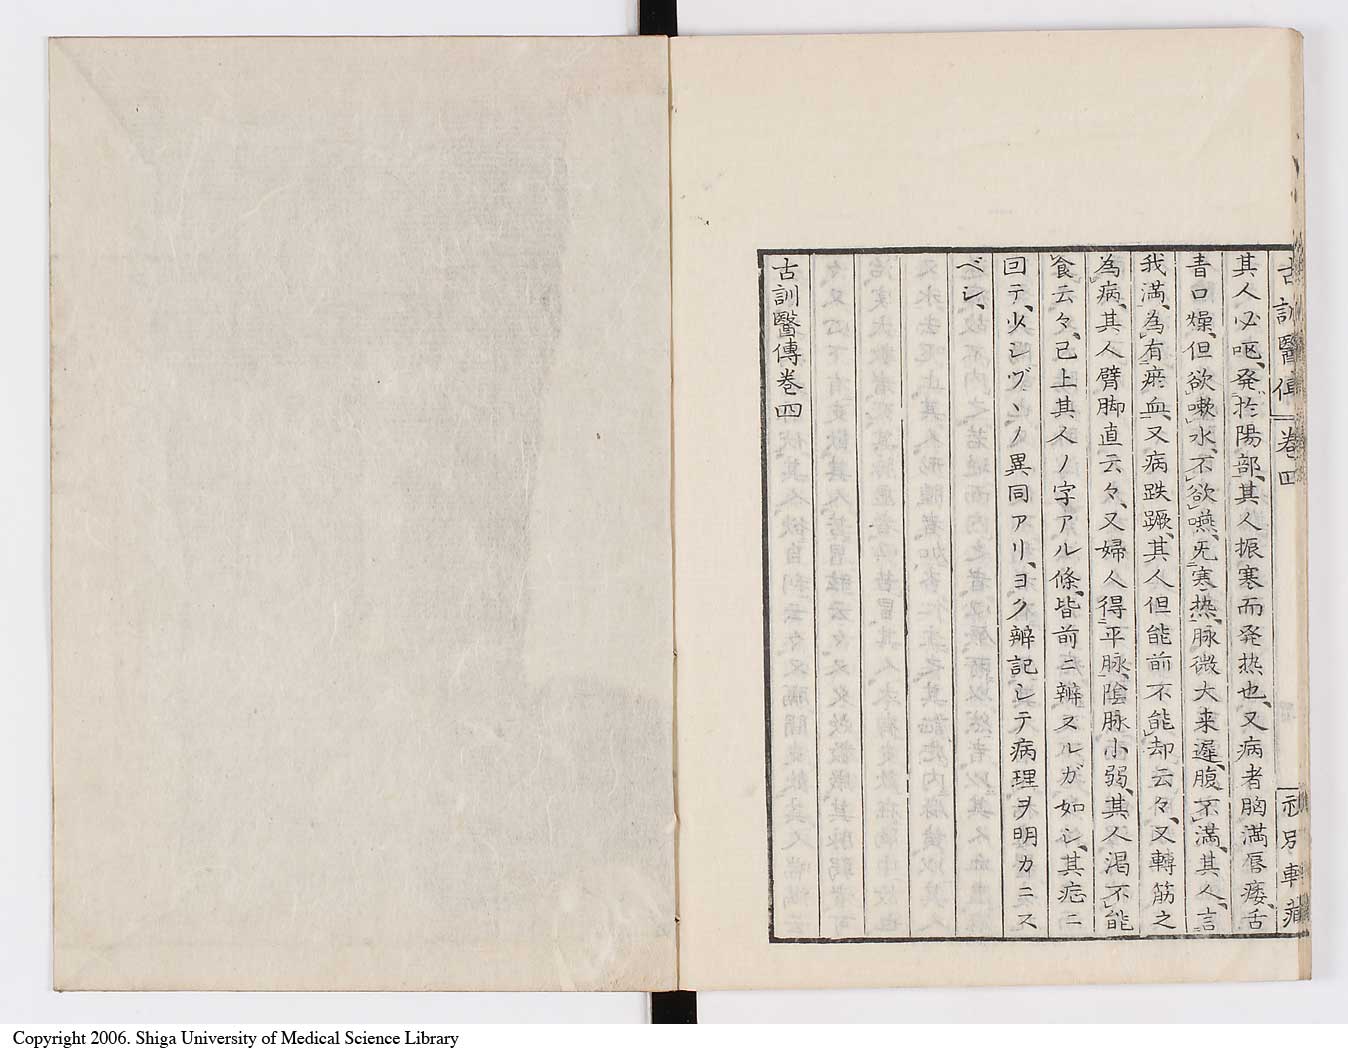 古訓醫傳 卷四
其人必呕、発於陽部、其人振寒而発热也、又病者胸満唇痿、舌
青口燥、但欲嗽水、不欲嚥、无寒热、脉微大来遲、腹不満、其人言
我満、為有瘀血、又病趺蹶、其人但能前不能却云々、又轉筋之
為病、其人臂脚直云々、又婦人得平脉、陰脉小弱、其人渇不能
食云々、已上其人ノ字アル條、皆前ニ辨スルガ如シ、其疟ニ
回テ、少シヅヽノ異同アリ、ヨク辨記シテ病理ヲ明カニス
ベシ、
古訓醫傳卷四
Copyright 2006. Shiga University of Medical Science Library